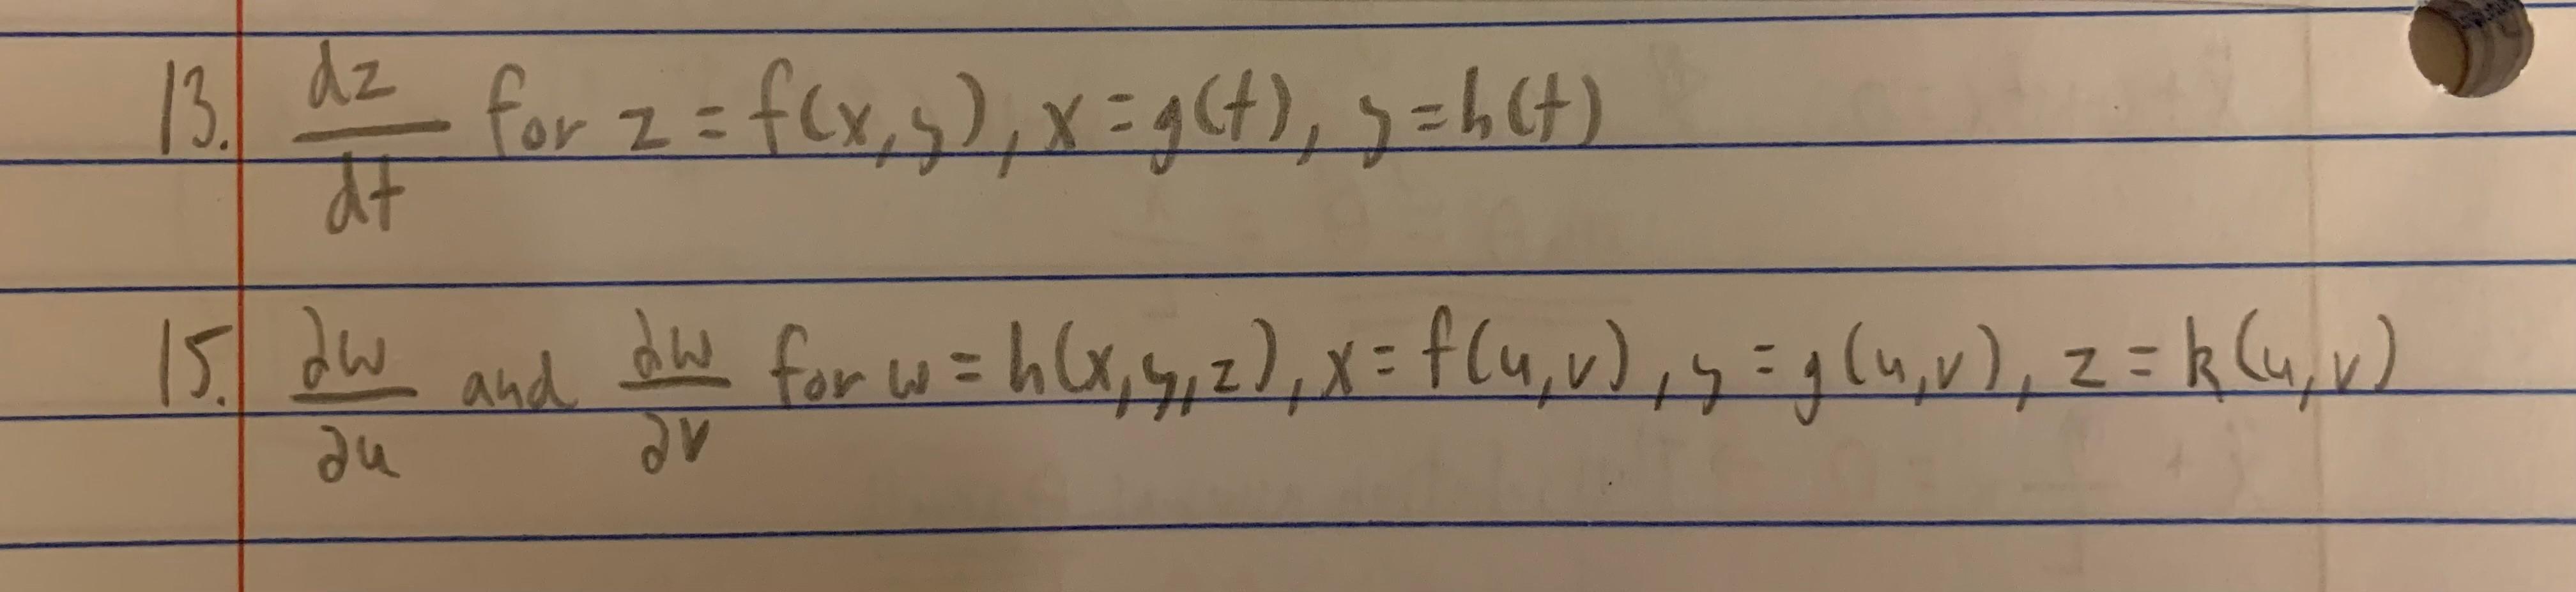 13. dz/dt for z = f(x,y), x = g(t), y = h(t)
15. ∂w/∂u and ∂w/∂v for w = h(x,y,z), x = f(u,v), y = g(u,v), z = k(u,v)